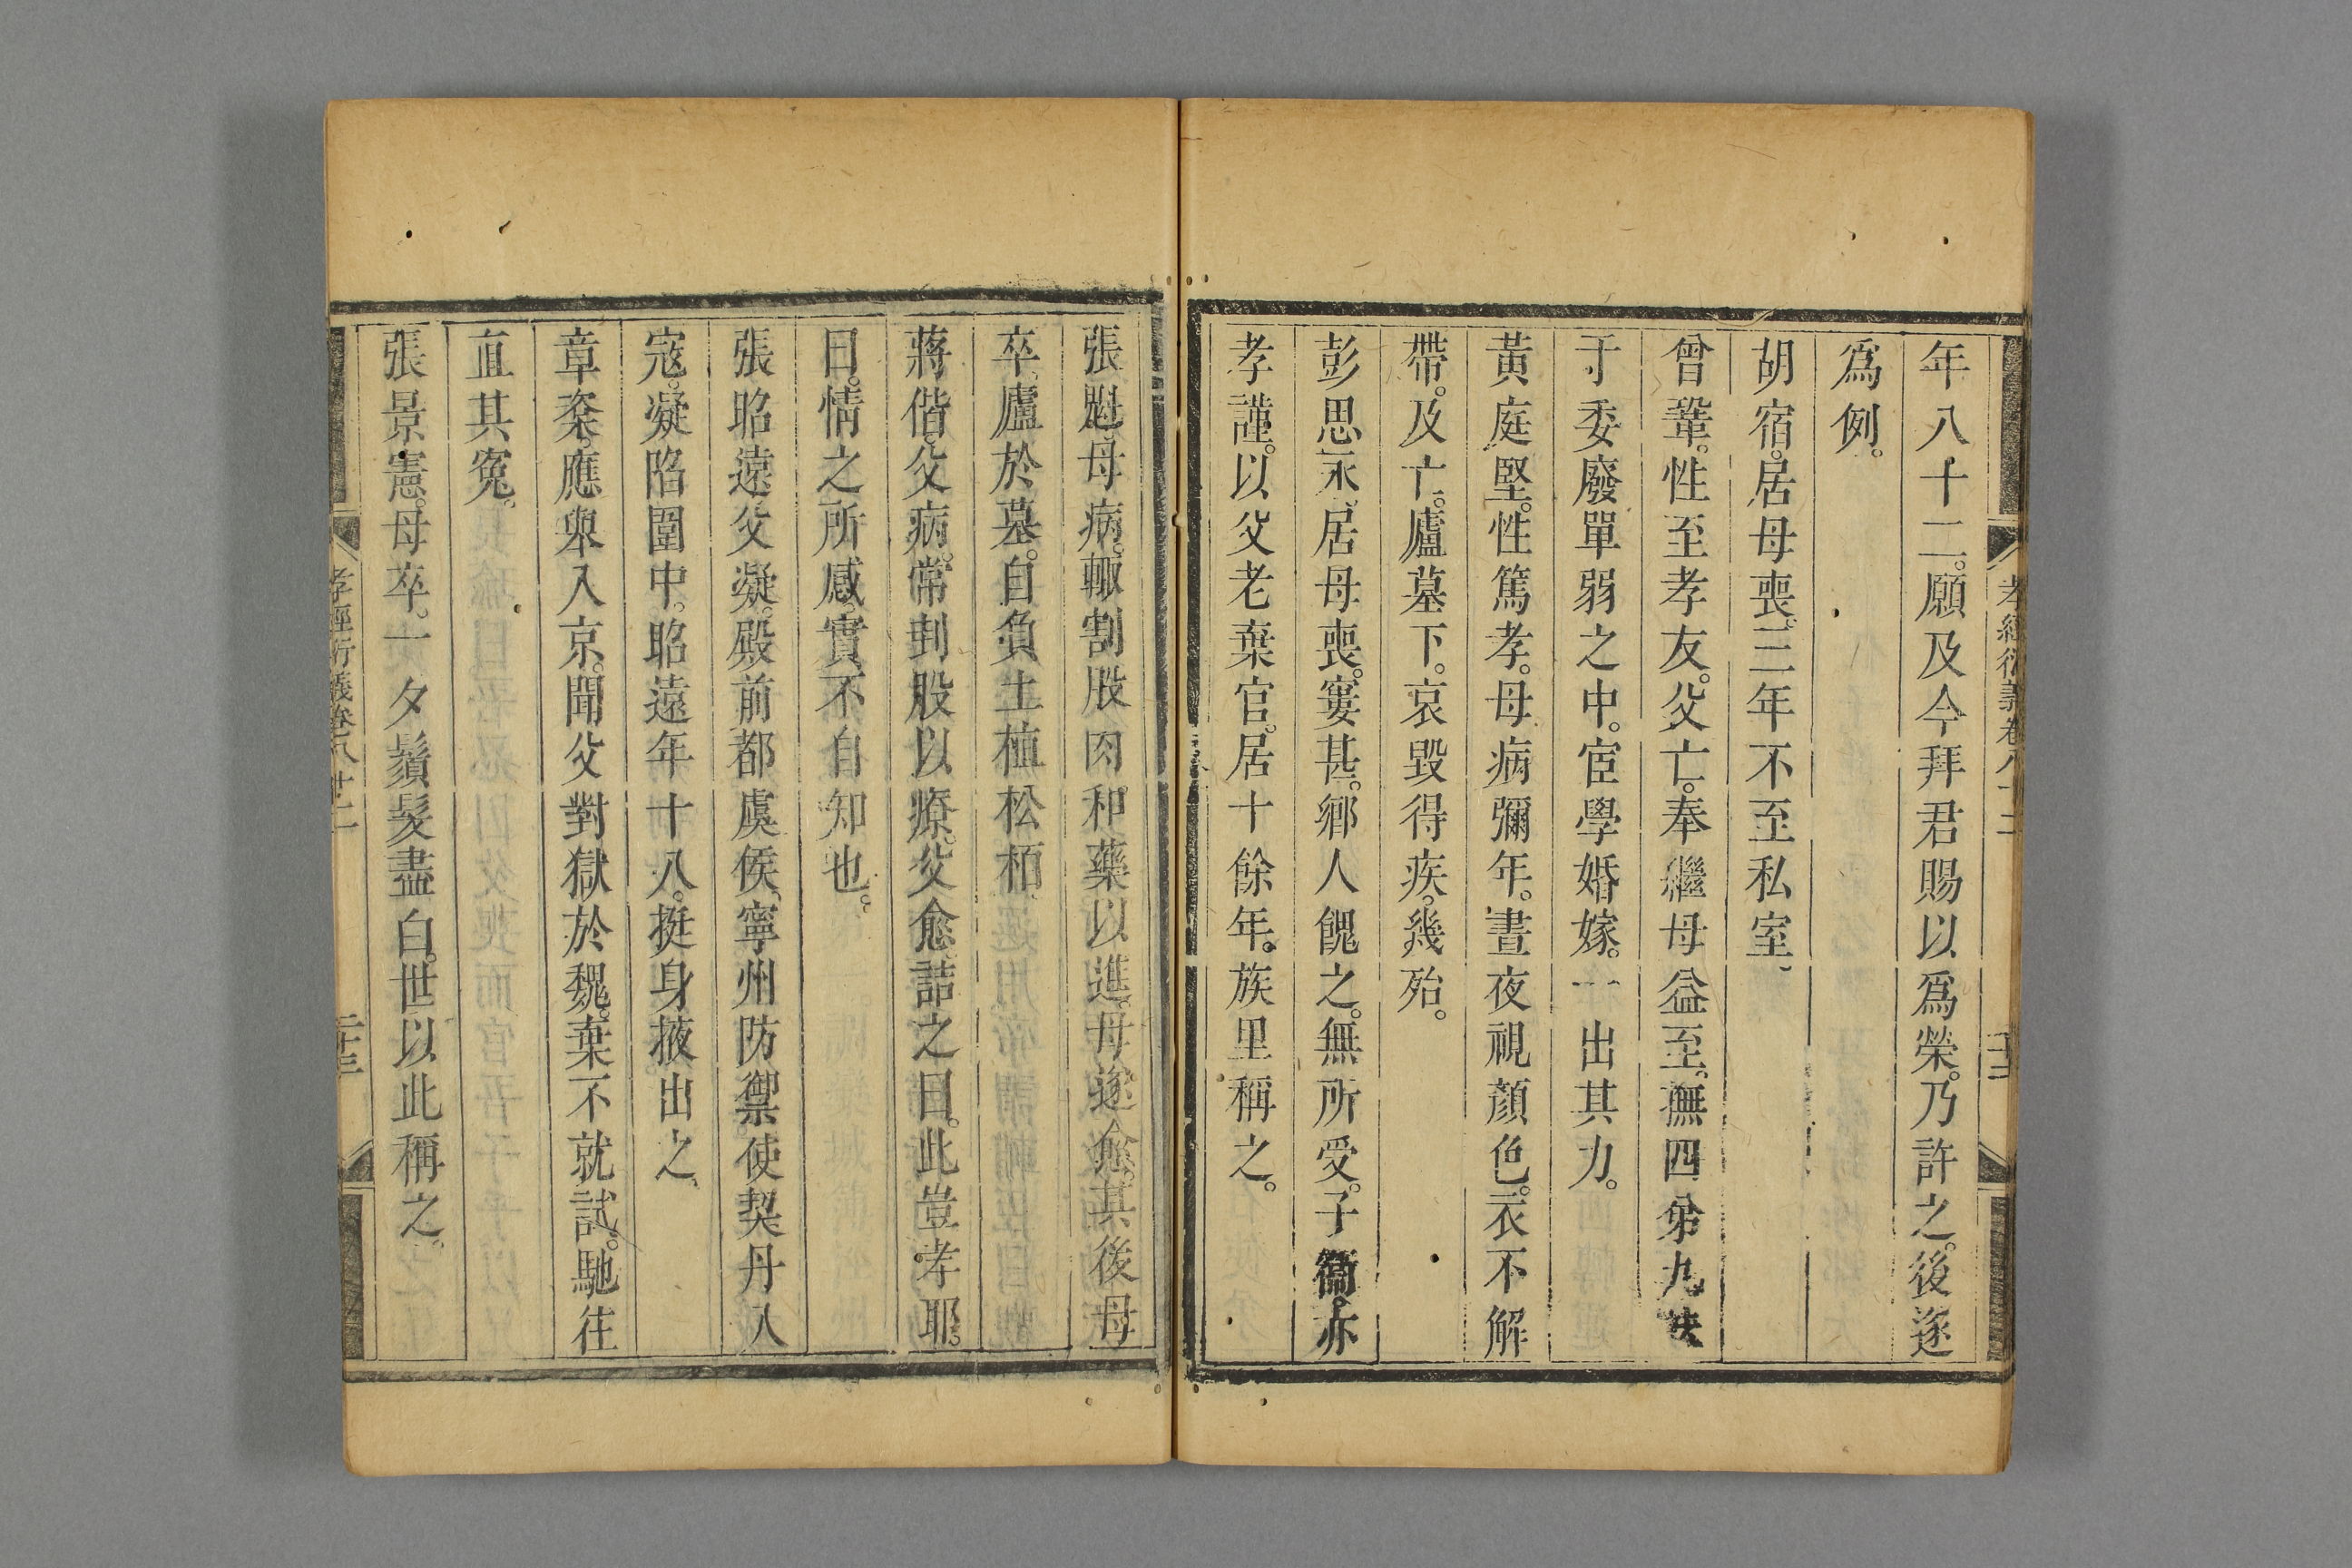 年八十二。願及今拜君賜以爲榮。乃許之。後遂
爲例。
胡宿。居母喪。三年不至私室。
曾鞏。性至孝友。父亡。奉繼母益至。撫四弟九妹
于委廢單弱之中。宦學婚嫁。一出其力。
黃庭堅。性篤孝。母病彌年。晝夜視顏色。衣不解
帶。及亡。廬墓下。哀毀得疾。幾殆。
彭思永。居母喪。窶甚。鄉人餽之。無所受。子衞。亦
孝謹。以父老棄官。居十餘年。族里稱之。
張母病。輒割股肉和藥以進。母遂愈。其後母
卒。廬於墓。自負土植松栢。
蔣偕。父病。常刲股以療。父愈。詰之曰。此豈孝耶。
曰。情之所感。實不自知也。
張昭遠父凝。殿前都虞侯。寧州防禦使契丹入
寇。凝陷圍中。昭遠年十八。挺身掖出之。
章楶。應舉入京。聞父對獄於魏。棄不就試。馳往
直其冤。
張景憲。母卒。一夕鬚髮盡白。世以此稱之。
孝經衍義卷八十二
二十三